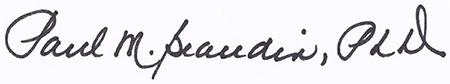 Paul M. Beaudin, PhD